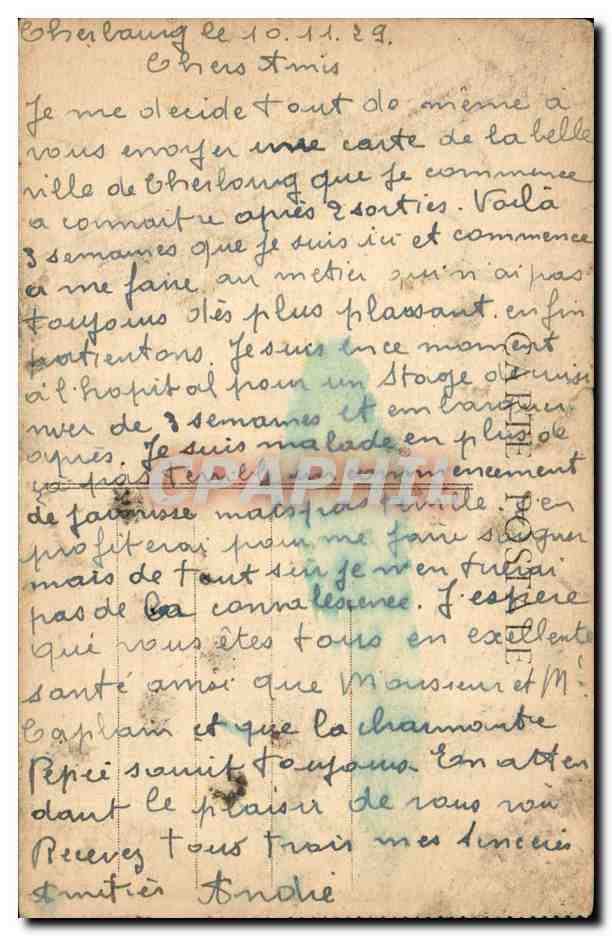 Cherbourg le 10.11.29.
Chers Amis
Je me decide tout de même à
vous envoyer une carte de la belle
ville de Cherbourg que je commence
a connaitre après 2 sorties. Voilà
3 semaines que je suis ici et commence
a me faire au metier qui n'ai pas
toujours dès plus plaisant. enfin
patientons. Je suis en ce moment
à l'hopital pour un stage
de 3 semaines et embarquer
après. Je suis malade en plus de
ça pas commencement
de mais pas J'en
profiterai pour me faire soigner
mais de tout sur je m'en tirerai
pas de la convalescence. J'espère
que vous êtes tous en excellente
santé ainsi que Monsieur et Me
Caplain et que la charmante
Pépée sourit toujours. En atten
dant le plaisir de vous voir
Recevez tous trois mes sincères
Amitiés André
CARTE POSTALE
CPAPHIL